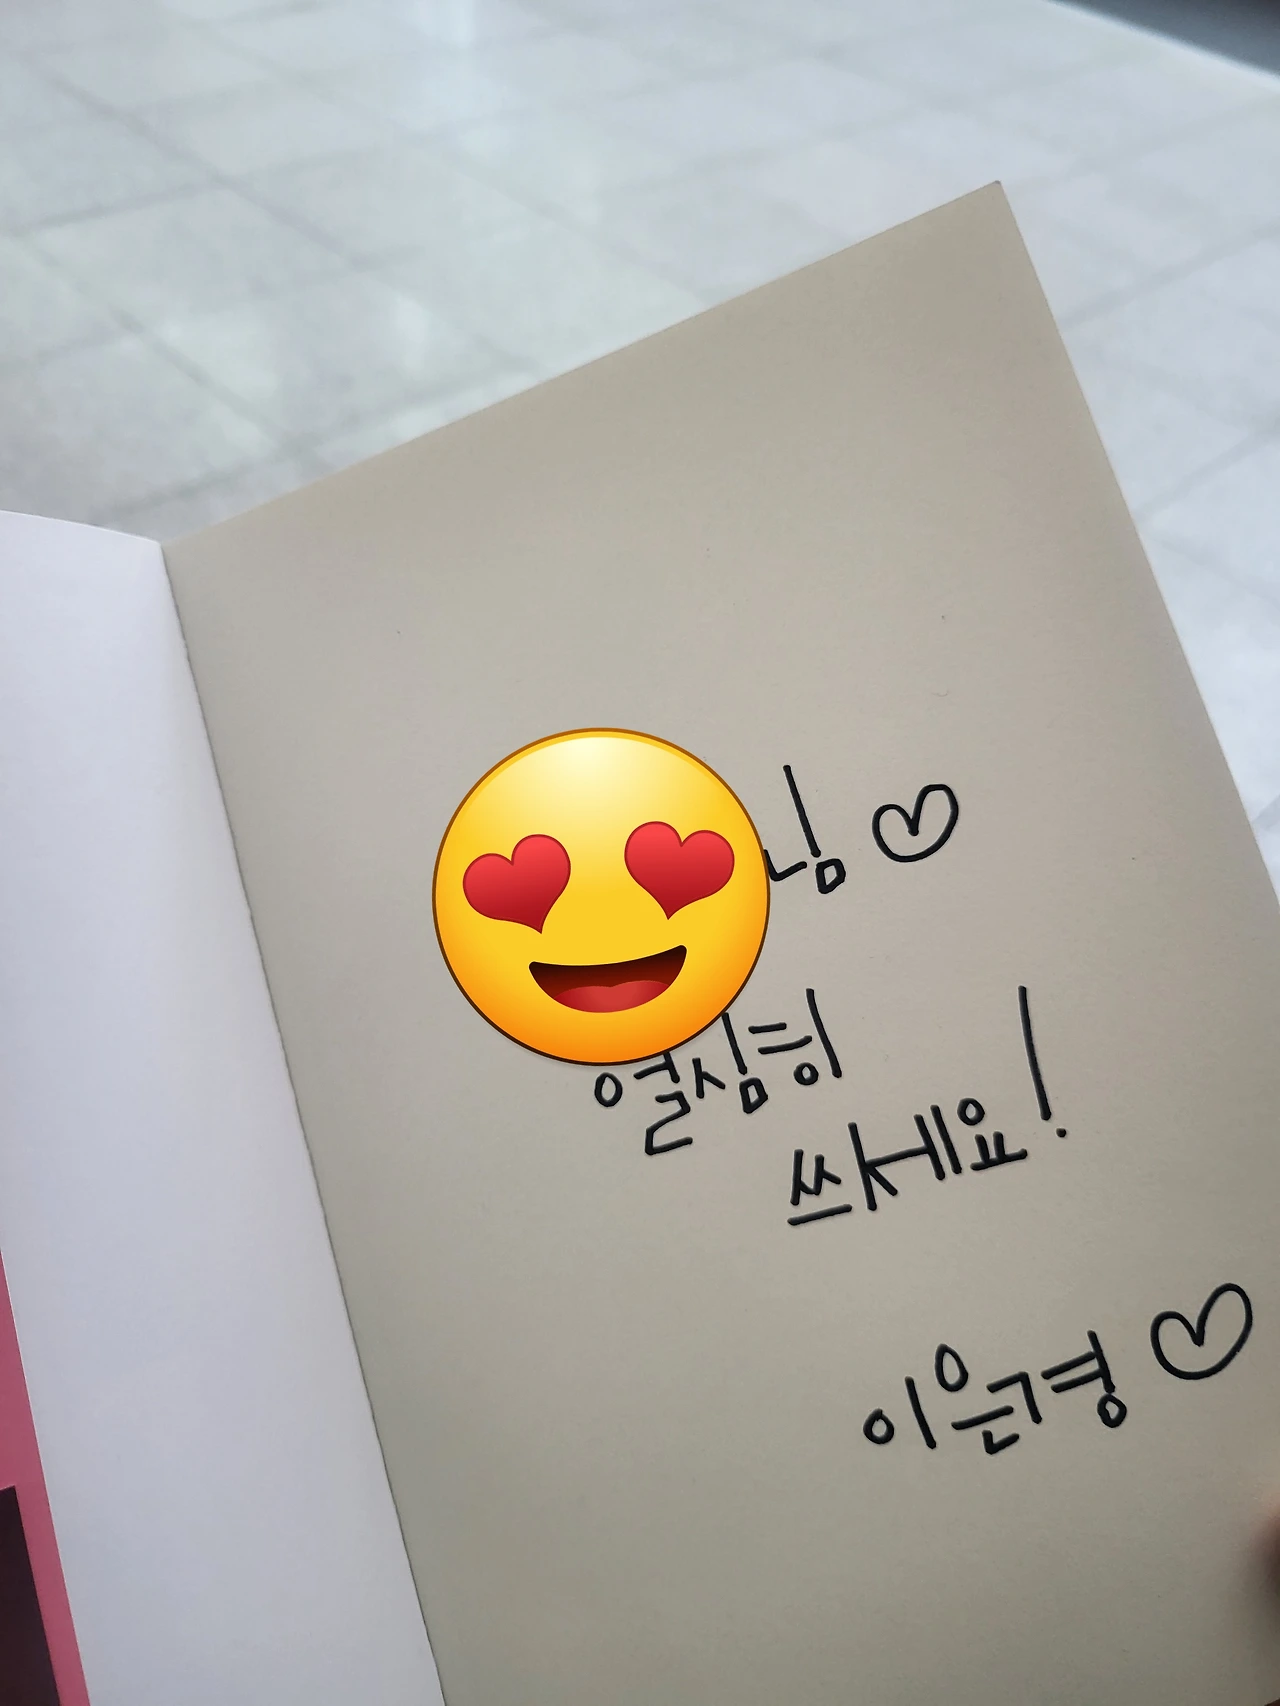 님♡
열심히
쓰세요!
이은경♡